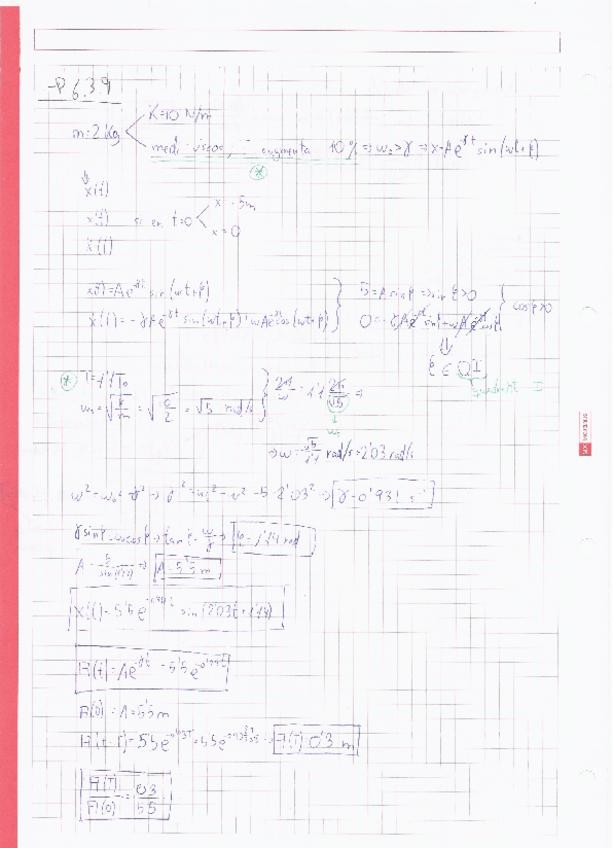 P 6.39
K=10 N/m
m=2 Kg
medi viscos, T augmenta 10% ⇒ w₀>γ ⇒ x=Ae^-γt sin(wt+φ)
*
x(t)
ẋ(t) si en t=0 x=5m
ẍ(t) ẋ=0
x(t)=Ae^-γt sin(wt+φ)
ẋ(t)=-γAe^-γt sin(wt+φ)+wAe^-γt cos(wt+φ)
5=A sinφ ⇒ sinφ>0
cosφ>0
φ ∈ QI
quadrant I
* T=1'1T₀
w₀=√(k/m)=√(10/2)=√5 rad/s
2π/w=1'1 2π/√5 ⇒
w₀
⇒ w=√5/1'1 rad/s=2'03 rad/s
w²=w₀²-γ² → γ²=w₀²-w²=5-2'03² ⇒ γ=0'931 s⁻¹
γ sinφ=w cosφ → tanφ=w/γ → φ=1'14 rad
A=5/sin(1'14) → A=5'5 m
x(t)=5'5e^-0'931t sin(2'03t+1'14)
A(t)=Ae^-γt=5'5e^-0'931t
A(0)=A=5'5m
A(T)=0'3 m
A(T)/A(0)=0'3/5'5